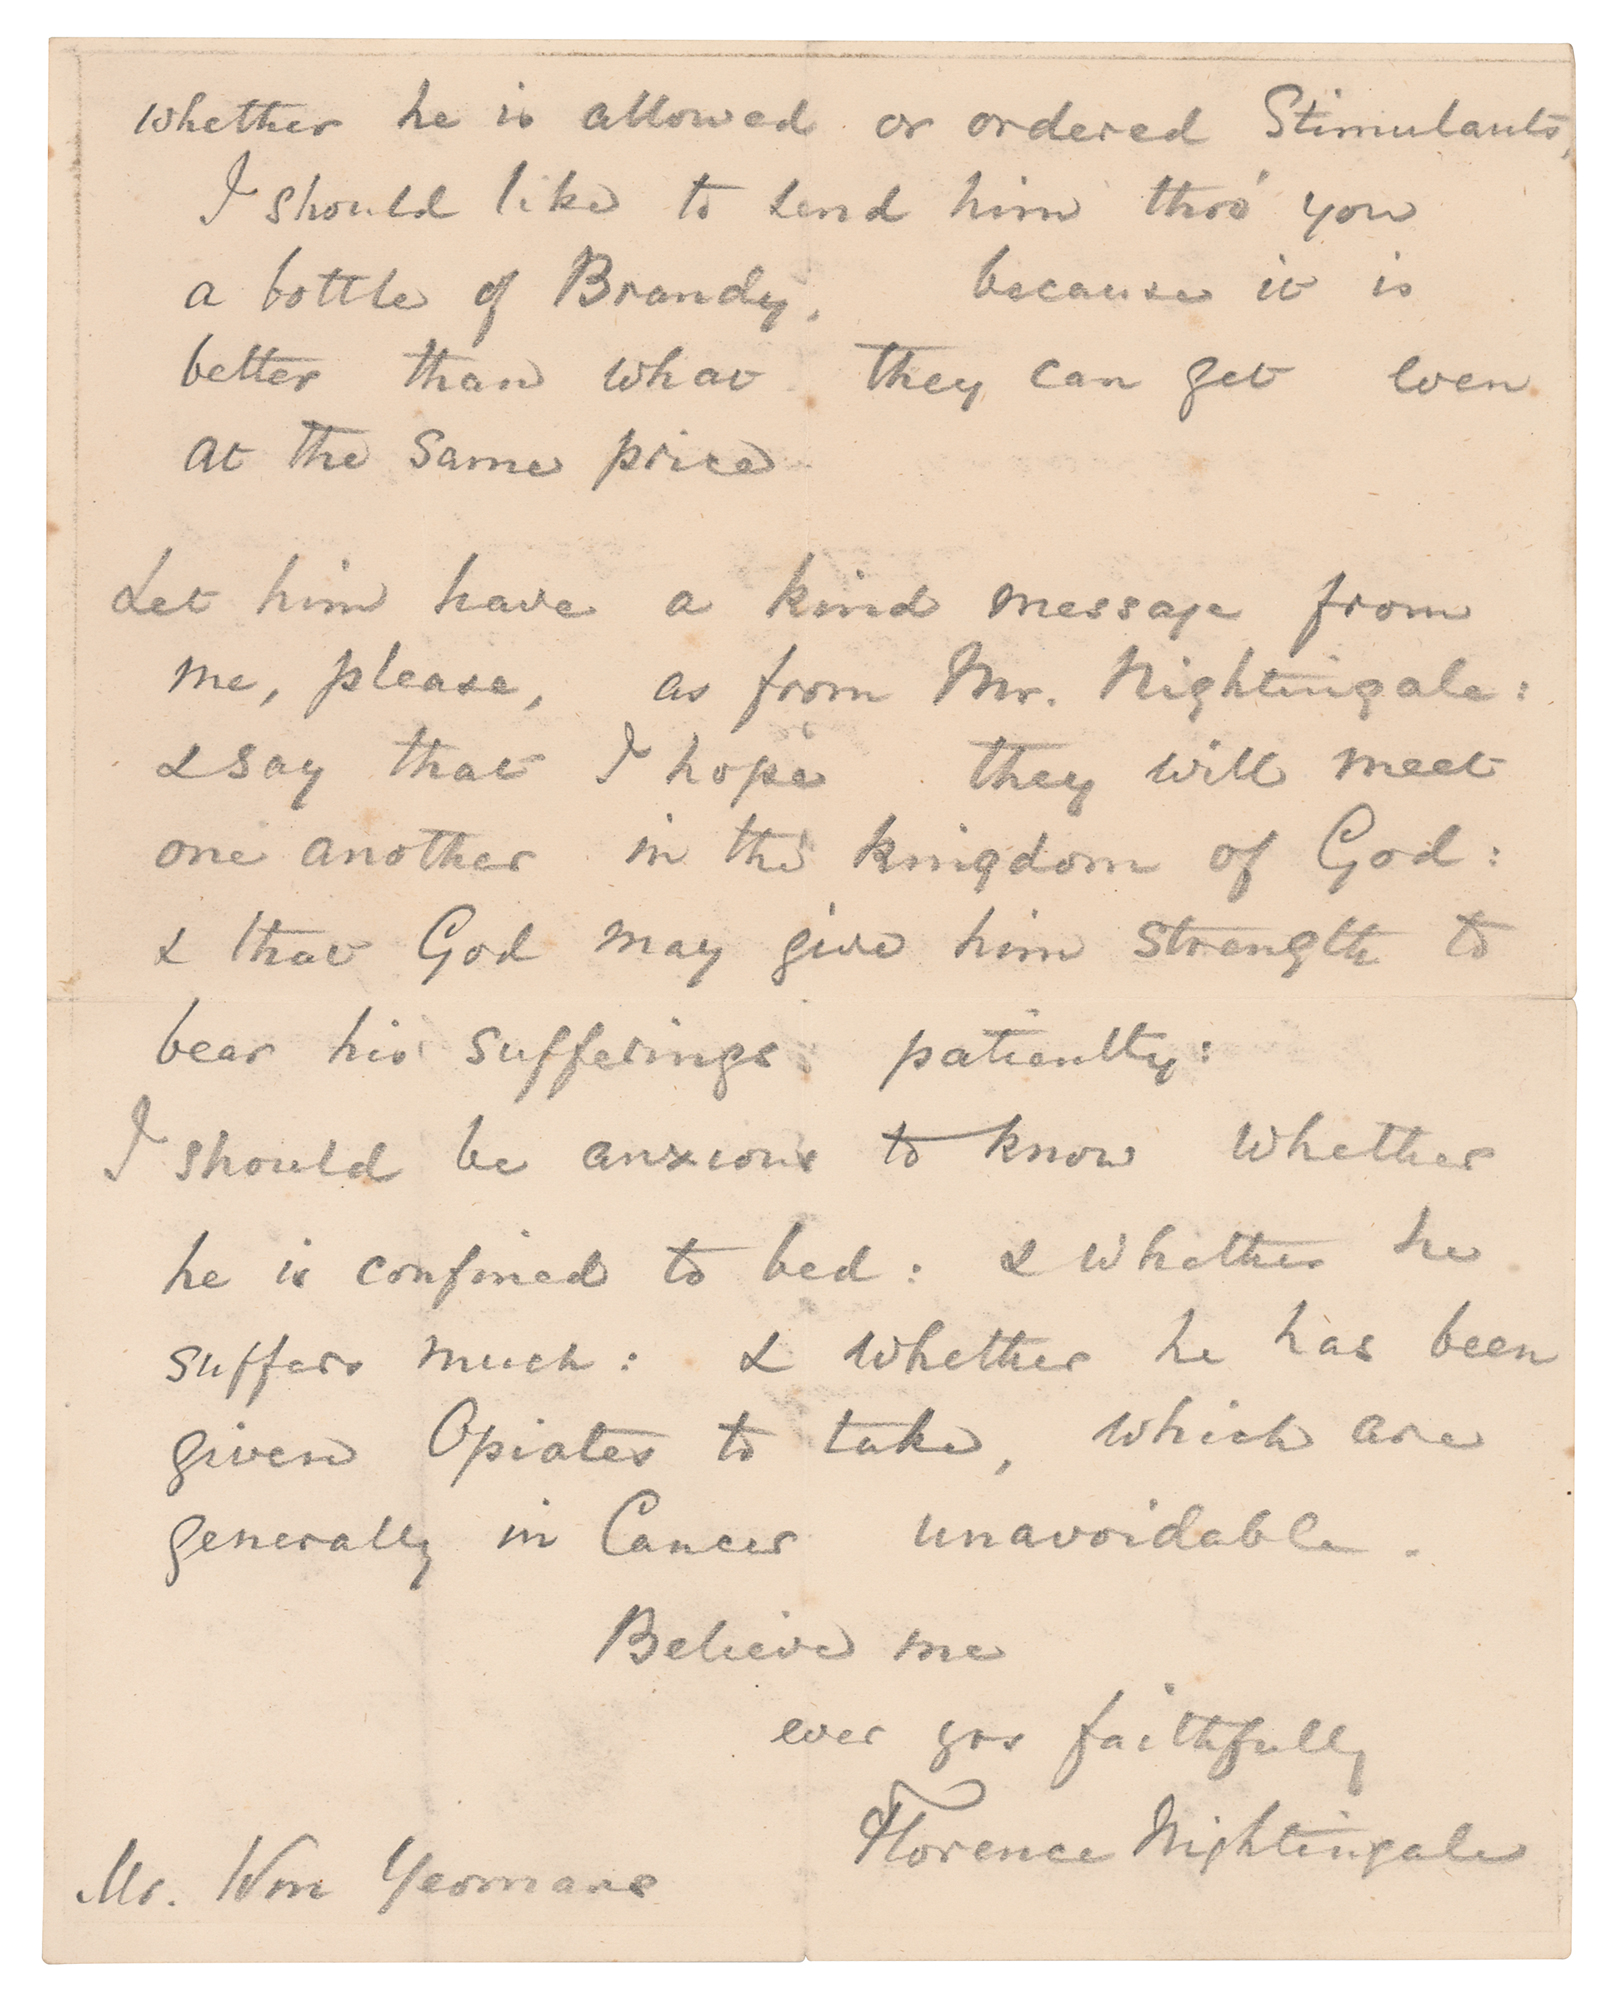 whether he is allowed or ordered Stimulants,
I should like to send him thro' you
a bottle of Brandy, because it is
better than what they can get even
at the same price
Let him have a kind message from
me, please, as from Mr. Nightingale:
& say that I hope they will meet
one another in the kingdom of God:
& that God may give him strength to
bear his sufferings patiently:
I should be anxious to know whether
he is confined to bed: & whether he
suffers much: & whether he has been
given Opiates to take, which are
generally in Cancer unavoidable.
Believe me
ever yrs faithfully
Florence Nightingale
Mr. Wm Yeomans